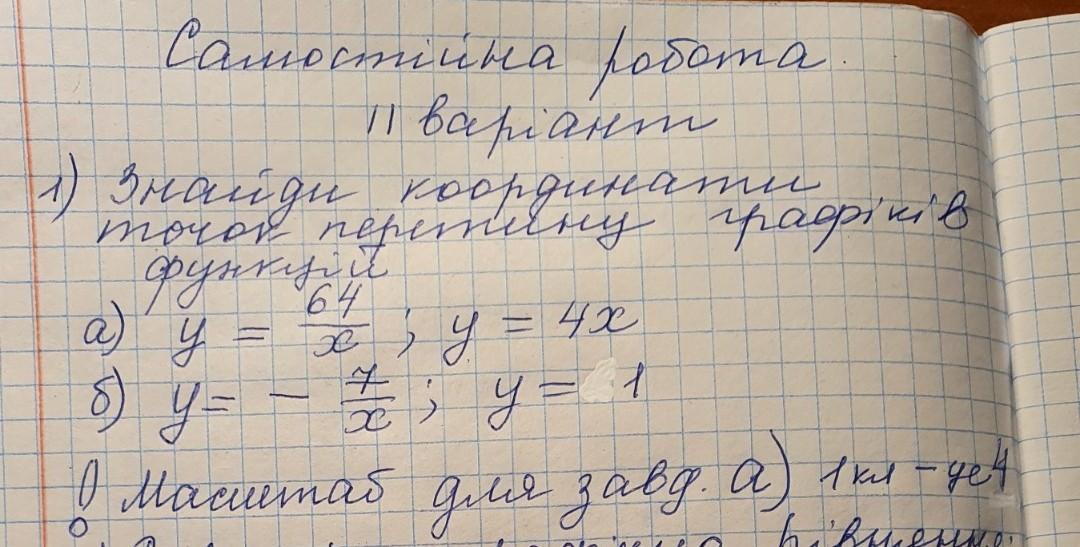 Самостійна робота.
II варіант
1) Знайди координати
точок перетину графіків
функцій
а) y = 64/x ; y = 4x
б) y = - 7/x ; y = 1
! Масштаб для завд. а) 1 кл - це 4